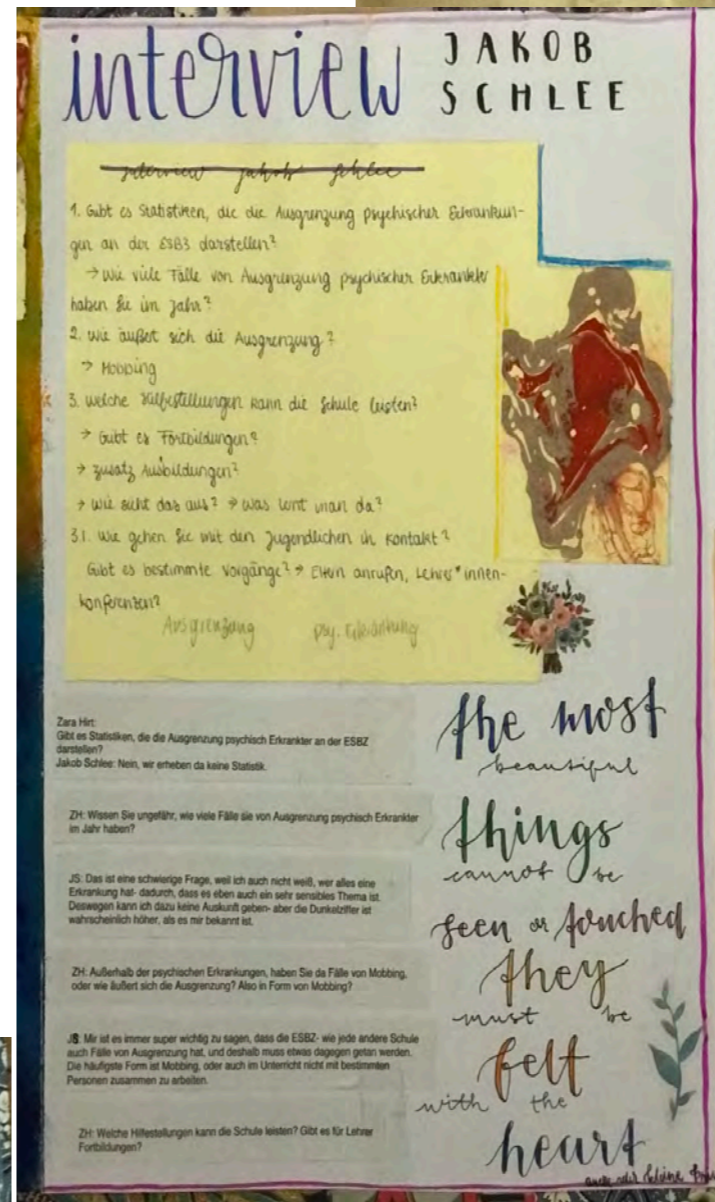 interview
JAKOB
SCHLEE
interview jakob schlee
1. Gibt es Statistiken, die die Ausgrenzung psychischer Erkrankun-
gen an der ESBZ darstellen?
→ Wie viele Fälle von Ausgrenzung psychischer Erkrankter
haben Sie im Jahr?
2. Wie äußert sich die Ausgrenzung?
→ Mobbing
3. Welche Hilfestellungen kann die Schule leisten?
→ Gibt es Fortbildungen?
→ zusatz Ausbildungen?
→ wie sieht das aus? → was lernt man da?
3.1. Wie gehen Sie mit den Jugendlichen in Kontakt?
Gibt es bestimmte Vorgänge? → Eltern anrufen, Lehrer*innen-
konferenzen?
Ausgrenzung psy. Erkrankung
Zara Hirt:
Gibt es Statistiken, die die Ausgrenzung psychisch Erkrankter an der ESBZ
darstellen?
Jakob Schlee: Nein, wir erheben da keine Statistik.
ZH: Wissen Sie ungefähr, wie viele Fälle sie von Ausgrenzung psychisch Erkrankter
im Jahr haben?
JS: Das ist eine schwierige Frage, weil ich auch nicht weiß, wer alles eine
Erkrankung hat- dadurch, dass es eben auch ein sehr sensibles Thema ist.
Deswegen kann ich dazu keine Auskunft geben- aber die Dunkelziffer ist
wahrscheinlich höher, als es mir bekannt ist.
ZH: Außerhalb der psychischen Erkrankungen, haben Sie da Fälle von Mobbing,
oder wie äußert sich die Ausgrenzung? Also in Form von Mobbing?
JS: Mir ist es immer super wichtig zu sagen, dass die ESBZ- wie jede andere Schule
auch Fälle von Ausgrenzung hat, und deshalb muss etwas dagegen getan werden.
Die häufigste Form ist Mobbing, oder auch im Unterricht nicht mit bestimmten
Personen zusammen zu arbeiten.
ZH: Welche Hilfestellungen kann die Schule leisten? Gibt es für Lehrer
Fortbildungen?
the most
beautiful
things
cannot be
seen or touched
they
must be
felt
with the
heart